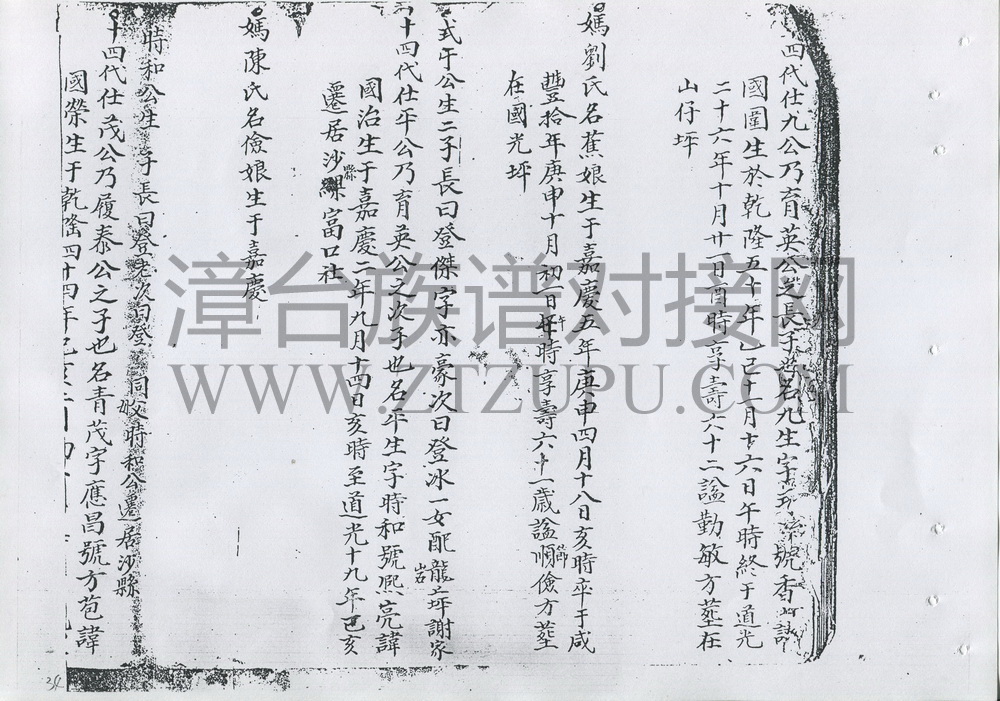 四代仕九公乃育英公之長子也名九生字號香
國圍生於乾隆五十年乙巳十一月十六日午時終于道光
二十六年十月廿一日酉時享壽六十二諡勤敏方塟在
山仔坪
媽劉氏名蕉娘生于嘉慶五年庚申四月十八日亥時卒于咸
豐拾年庚申十月初一日午時享壽六十一歲諡順儉方塟
在國光坪
式于公生二子長曰登傑字亦豪次曰登冰一女配龍岩謝家
十四代仕平公乃育英公之次子也名平生字時和號熙亮諱
國治生于嘉慶二年九月十四日亥時至道光十九年己亥
遷居沙縣富口社
媽陳氏名儉娘生于嘉慶
時和公生子長曰登老次曰登同妣時和公遷居沙縣
十四代仕茂公乃履泰公之子也名青茂字應昌號方苞諱
國榮生于乾隆四十四年己亥
漳台族谱对接网
WWW.ZTZUPU.COM